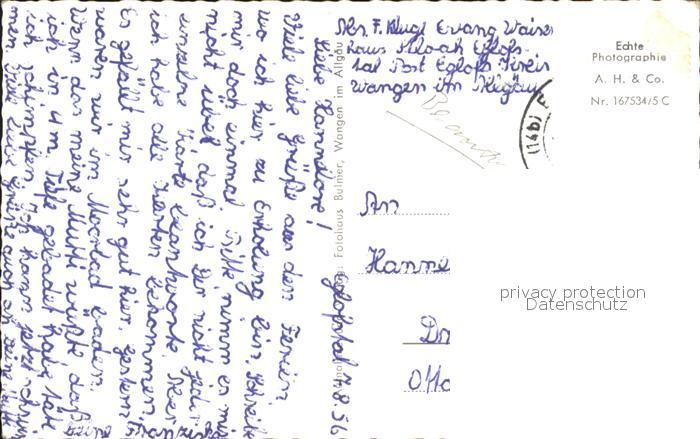 Abs. F. Klugt Evang Waisen
haus Siloah Eglofs
tal Post Eglofs Kreis
Wangen im Allgäu
Echte
Photographie
A. H. & Co.
Nr. 167534/5 C
(14b)
An
Hanne
Dr
Otto
privacy protection
Datenschutz
Fotohaus Bulmer, Wangen im Allgäu
Eglofstal 7.8.56
Liebe Hannelore!
Viele liebe Grüße aus den Ferien
wo ich hier zu Erholung bin. Schreibe
mir doch einmal. Bitte nimm es mir
nicht übel daß ich Dir nicht jede
einzelne Karte beantworte. Aber
ich habe alle Karten bekommen.
Es gefällt mir sehr gut hier, gestern
waren wir im Moorbad baden.
Wenn das meine Mutti wüßte daß
ich in 4 m Tiefe gebadet habe tät
ich schimpfen. Ich kann jetzt schwim
men
Deine Franziska